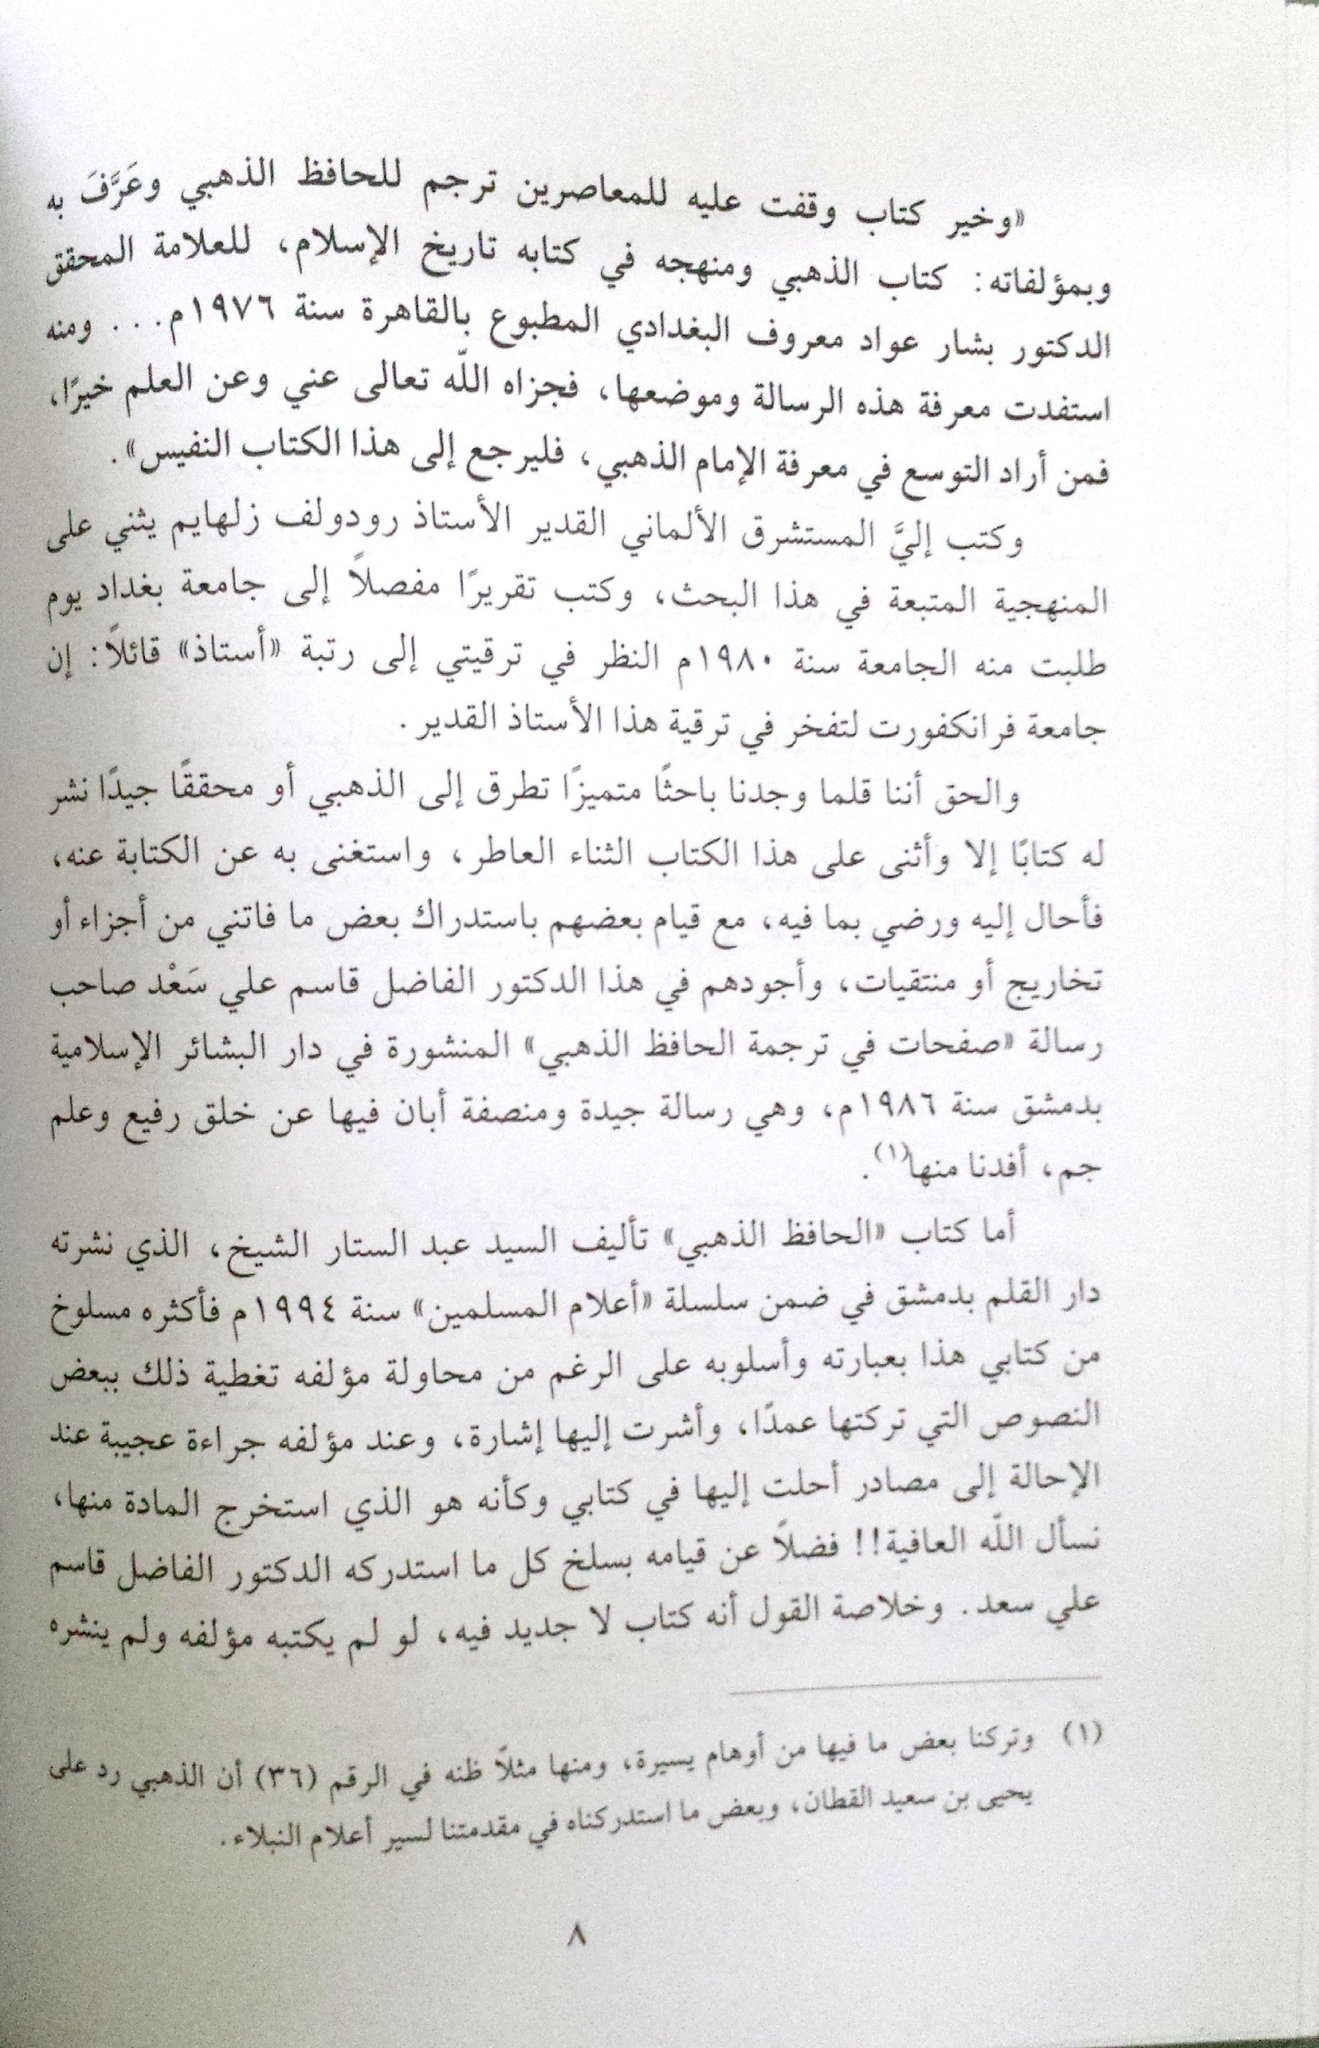 «وخير كتاب وقفت عليه للمعاصرين ترجم للحافظ الذهبي وعَرَّفَ به
وبمؤلفاته: كتاب الذهبي ومنهجه في كتابه تاريخ الإسلام، للعلامة المحقق
الدكتور بشار عواد معروف البغدادي المطبوع بالقاهرة سنة ١٩٧٦م... ومنه
استفدت معرفة هذه الرسالة وموضعها، فجزاه اللّه تعالى عني وعن العلم خيرًا،
فمن أراد التوسع في معرفة الإمام الذهبي، فليرجع إلى هذا الكتاب النفيس».
وكتب إليَّ المستشرق الألماني القدير الأستاذ رودولف زلهايم يثني على
المنهجية المتبعة في هذا البحث، وكتب تقريرًا مفصلاً إلى جامعة بغداد يوم
طلبت منه الجامعة سنة ١٩٨٠م النظر في ترقيتي إلى رتبة «أستاذ» قائلاً: إن
جامعة فرانكفورت لتفخر في ترقية هذا الأستاذ القدير.
والحق أننا قلما وجدنا باحثًا متميزًا تطرق إلى الذهبي أو محققًا جيدًا نشر
له كتابًا إلا وأثنى على هذا الكتاب الثناء العاطر، واستغنى به عن الكتابة عنه،
فأحال إليه ورضي بما فيه، مع قيام بعضهم باستدراك بعض ما فاتني من أجزاء أو
تخاريج أو منتقيات، وأجودهم في هذا الدكتور الفاضل قاسم علي سَعْد صاحب
رسالة «صفحات في ترجمة الحافظ الذهبي» المنشورة في دار البشائر الإسلامية
بدمشق سنة ١٩٨٦م، وهي رسالة جيدة ومنصفة أبان فيها عن خلق رفيع وعلم
جم، أفدنا منها(١).
أما كتاب «الحافظ الذهبي» تأليف السيد عبد الستار الشيخ، الذي نشرته
دار القلم بدمشق في ضمن سلسلة «أعلام المسلمين» سنة ١٩٩٤م فأكثره مسلوخ
من كتابي هذا بعبارته وأسلوبه على الرغم من محاولة مؤلفه تغطية ذلك ببعض
النصوص التي تركتها عمدًا، وأشرت إليها إشارة، وعند مؤلفه جراءة عجيبة عند
الإحالة إلى مصادر أحلت إليها في كتابي وكأنه هو الذي استخرج المادة منها،
نسأل اللّه العافية!! فضلاً عن قيامه بسلخ كل ما استدركه الدكتور الفاضل قاسم
علي سعد. وخلاصة القول أنه كتاب لا جديد فيه، لو لم يكتبه مؤلفه ولم ينشره
(١) وتركنا بعض ما فيها من أوهام يسيرة، ومنها مثلاً ظنه في الرقم (٣٦) أن الذهبي رد على
يحيى بن سعيد القطان، وبعض ما استدركناه في مقدمتنا لسير أعلام النبلاء.
٨